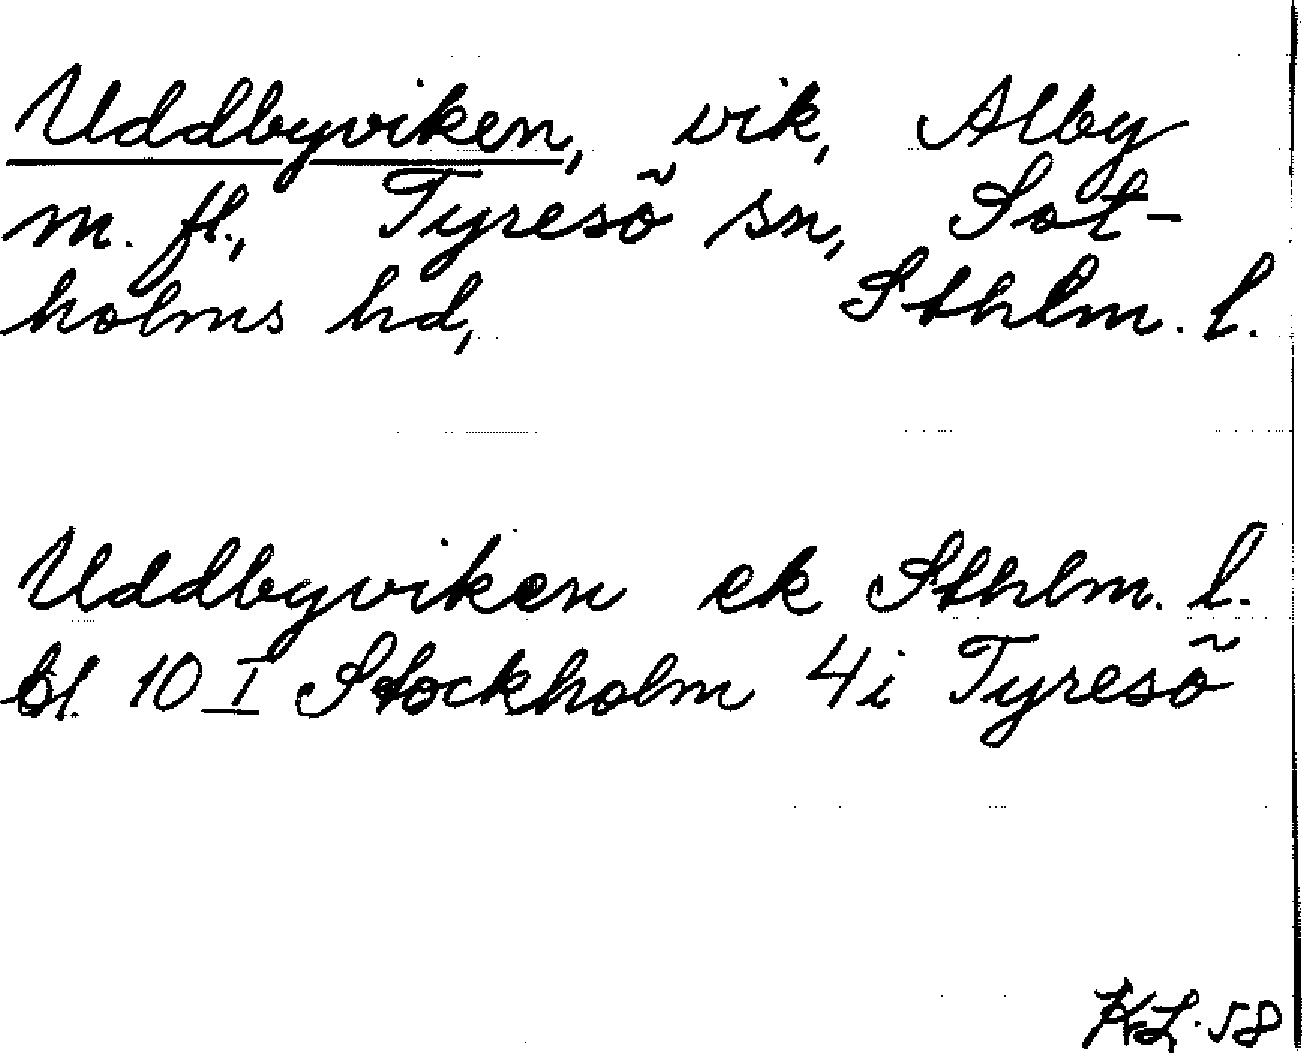 Uddbyviken, vik, Alby
m. fl., Tyresö sn, Sot-
holms hd, Sthlm. l.
Uddbyviken ek Sthlm. l.
bl. 10 I Stockholm 4i Tyresö
KL. 58